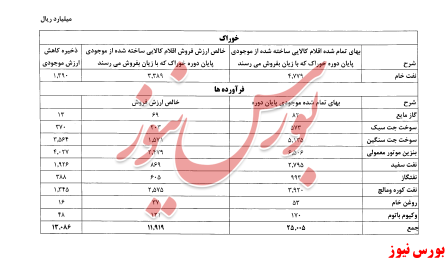 میلیارد ریال
خوراک
شرح بهای تمام شده اقلام کالایی ساخته شده از موجودی پایان دوره خوراک که با زیان بفروش می رسند خالص ارزش فروش اقلام کالایی ساخته شده از موجودی پایان دوره خوراک که با زیان بفروش می رسند ذخیره کاهش ارزش موجودی
نفت خام ۴,۷۷۹ ۳,۳۸۹ ۱,۳۹۰
فرآورده ها
شرح بهای تمام شده موجودی پایان دوره خالص ارزش فروش
گاز مایع ۶۹ ۱۳
سوخت جت سبک ۵۷۳ ۲۰۳ ۳۷۰
سوخت جت سنگین ۵,۱۳۵ ۱,۵۷۱ ۳,۵۶۴
بنزین موتور معمولی ۶,۵۰۶ ۲,۴۷۹ ۴,۰۲۷
نفت سفید ۲,۷۹۵ ۸۶۹ ۱,۹۲۶
نفتگاز ۹۹۳ ۶۰۵ ۳۸۸
نفت کوره ومالچ ۳,۹۲۰ ۲,۵۷۵ ۱,۳۴۵
روغن خام ۵۳ ۳۷ ۱۶
وکیوم باتوم ۱۷۰ ۱۲۱ ۴۸
جمع ۲۵,۰۰۵ ۱۱,۹۱۹ ۱۳,۰۸۶
بورس نیوز
بورس نیوز